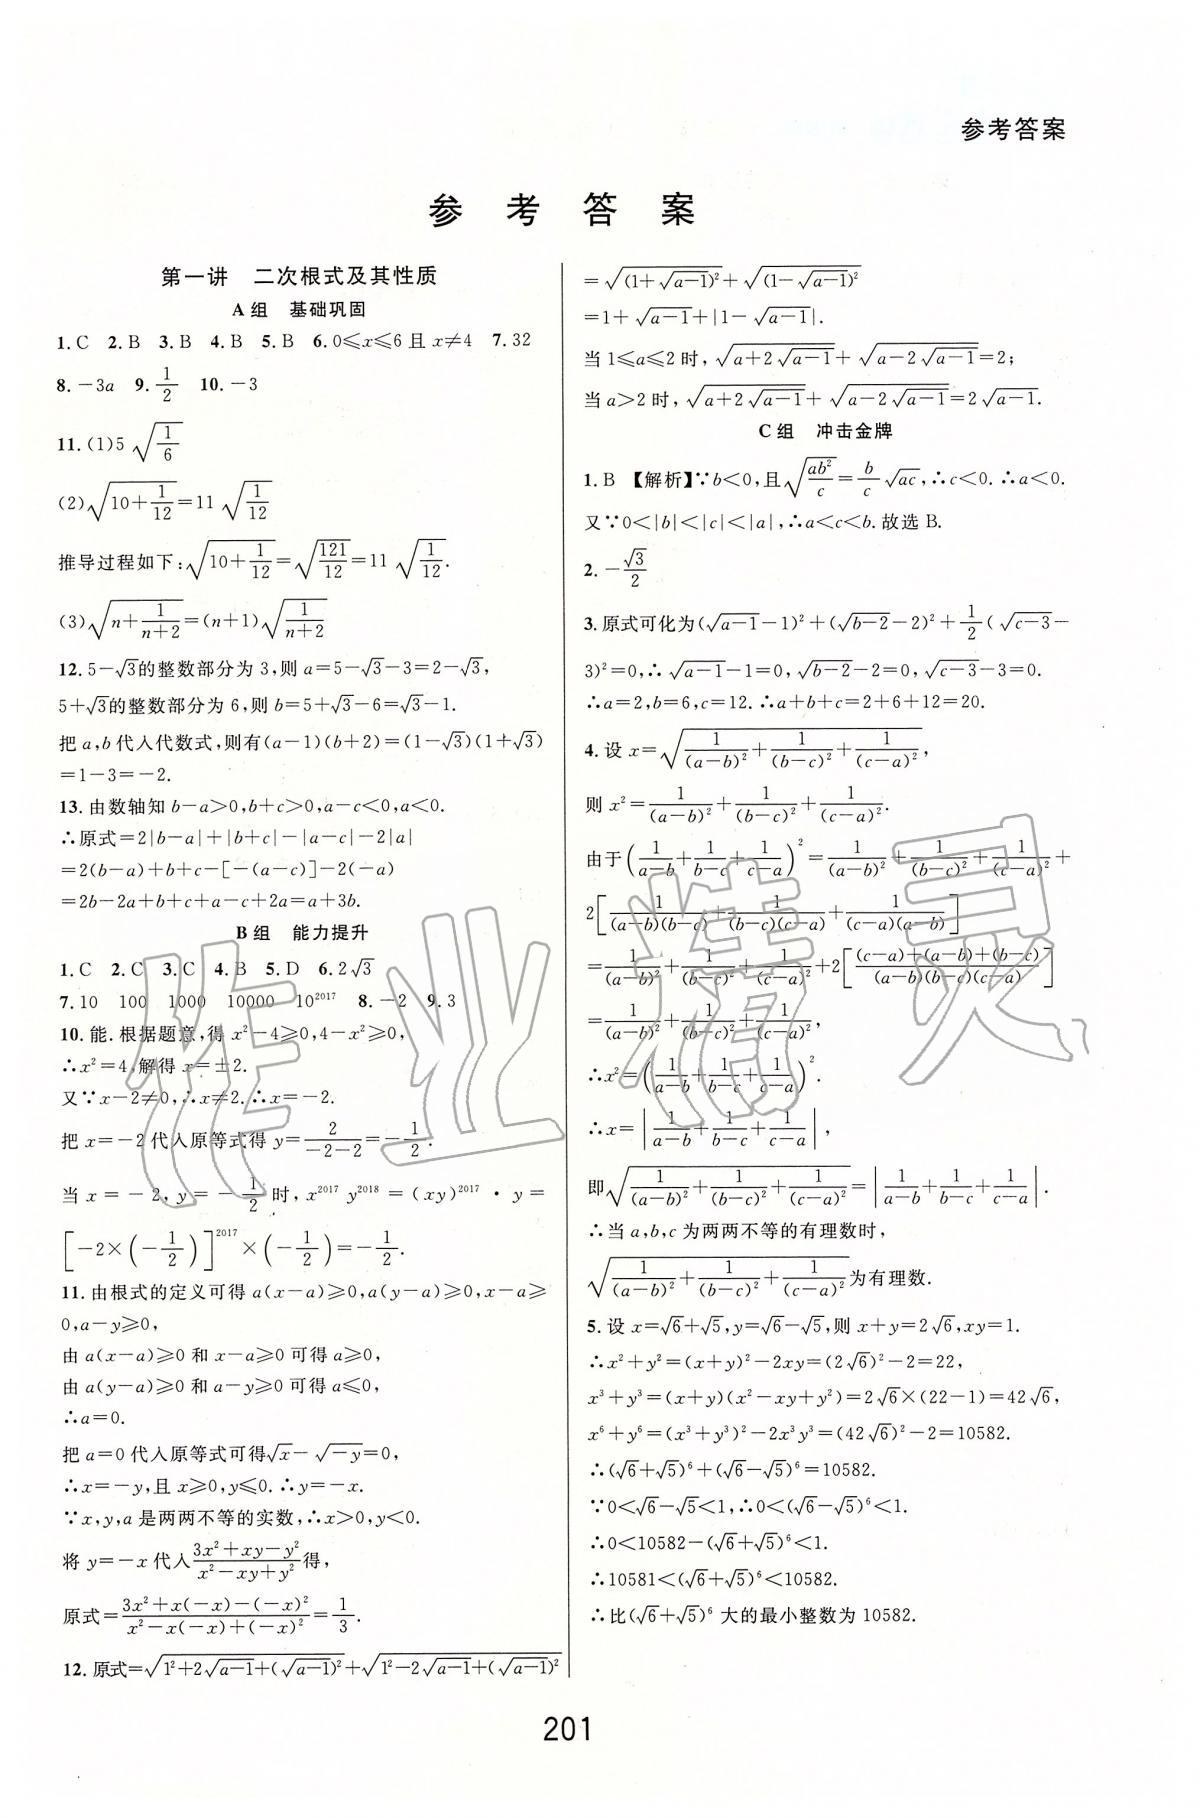 参考答案
参 考 答 案
第一讲 二次根式及其性质
A 组 基础巩固
1. C 2. B 3. B 4. B 5. B 6. 0≤x≤6 且 x≠4 7. 32
8. －3a 9. 1/2 10. －3
11. (1)5√(1/6)
(2)√(10+1/12)=11√(1/12)
推导过程如下:√(10+1/12)=√(121/12)=11√(1/12).
(3)√(n+1/(n+2))=(n+1)√(1/(n+2))
12. 5－√3的整数部分为 3,则 a=5－√3－3=2－√3,
5+√3的整数部分为 6,则 b=5+√3－6=√3－1.
把 a,b 代入代数式,则有(a－1)(b+2)=(1－√3)(1+√3)
=1－3=－2.
13. 由数轴知 b－a>0,b+c>0,a－c<0,a<0.
∴原式=2|b－a|+|b+c|－|a－c|－2|a|
=2(b－a)+b+c－[－(a－c)]－2(－a)
=2b－2a+b+c+a－c+2a=a+3b.
B 组 能力提升
1. C 2. C 3. C 4. B 5. D 6. 2√3
7. 10 100 1000 10000 10²⁰¹⁷ 8. －2 9. 3
10. 能. 根据题意,得 x²－4≥0,4－x²≥0,
∴x²=4,解得 x=±2.
又∵x－2≠0,∴x≠2. ∴x=－2.
把 x=－2 代入原等式得 y=2/(－2－2)=－1/2.
当 x=－2,y=－1/2 时,x²⁰¹⁷ y²⁰¹⁸=(xy)²⁰¹⁷ · y=
[－2×(－1/2)]²⁰¹⁷×(－1/2)=－1/2.
11. 由根式的定义可得 a(x－a)≥0,a(y－a)≥0,x－a≥
0,a－y≥0,
由 a(x－a)≥0 和 x－a≥0 可得 a≥0,
由 a(y－a)≥0 和 a－y≥0 可得 a≤0,
∴a=0.
把 a=0 代入原等式可得√x－√(－y)=0,
∴x=－y,且 x≥0,y≤0. ∴y=－x.
∵x,y,a 是两两不等的实数,∴x>0,y<0.
将 y=－x 代入(3x²+xy－y²)/(x²－xy+y²)得,
原式=(3x²+x(－x)－(－x)²)/(x²－x(－x)+(－x)²)=1/3.
12. 原式=√(1²+2√(a－1)+(√(a－1))²)+√(1²－2√(a－1)+(√(a－1))²)
=√((1+√(a－1))²)+√((1－√(a－1))²)
=1+√(a－1)+|1－√(a－1)|.
当 1≤a≤2 时,√(a+2√(a－1))+√(a－2√(a－1))=2;
当 a>2 时,√(a+2√(a－1))+√(a－2√(a－1))=2√(a－1).
C 组 冲击金牌
1. B 【解析】∵b<0,且√(ab²/c)=b/c√(ac),∴c<0. ∴a<0.
又∵0<|b|<|c|<|a|,∴a<c<b. 故选 B.
2. －√3/2
3. 原式可化为(√(a－1)－1)²+(√(b－2)－2)²+1/2(√(c－3)－
3)²=0,∴√(a－1)－1=0,√(b－2)－2=0,√(c－3)－3=0.
∴a=2,b=6,c=12. ∴a+b+c=2+6+12=20.
4. 设 x=√(1/(a－b)²+1/(b－c)²+1/(c－a)²),
则 x²=1/(a－b)²+1/(b－c)²+1/(c－a)².
由于(1/(a－b)+1/(b－c)+1/(c－a))²=1/(a－b)²+1/(b－c)²+1/(c－a)²+
2[1/((a－b)(b－c))+1/((b－c)(c－a))+1/((c－a)(a－b))]
=1/(a－b)²+1/(b－c)²+1/(c－a)²+2[((c－a)+(a－b)+(b－c))/((a－b)(b－c)(c－a))]
=1/(a－b)²+1/(b－c)²+1/(c－a)²,
∴x²=(1/(a－b)+1/(b－c)+1/(c－a))².
∴x=|1/(a－b)+1/(b－c)+1/(c－a)|,
即√(1/(a－b)²+1/(b－c)²+1/(c－a)²)=|1/(a－b)+1/(b－c)+1/(c－a)|.
∴当 a,b,c 为两两不等的有理数时,
√(1/(a－b)²+1/(b－c)²+1/(c－a)²)为有理数.
5. 设 x=√6+√5,y=√6－√5,则 x+y=2√6,xy=1.
∴x²+y²=(x+y)²－2xy=(2√6)²－2=22,
x³+y³=(x+y)(x²－xy+y²)=2√6×(22－1)=42√6,
x⁶+y⁶=(x³+y³)²－2x³y³=(42√6)²－2=10582.
∴(√6+√5)⁶+(√6－√5)⁶=10582.
∵0<√6－√5<1,∴0<(√6－√5)⁶<1.
∴0<10582－(√6+√5)⁶<1.
∴10581<(√6+√5)⁶<10582.
∴比(√6+√5)⁶ 大的最小整数为 10582.
作业精灵
201